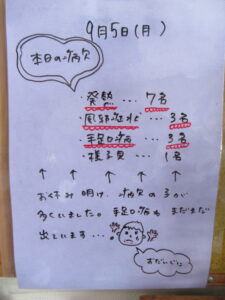 9月5日(月)
本日の病欠
・発熱 … 7名
・風邪症状 … 3名
・手足口病 … 3名
・様子見 … 1名
↑ ↑ ↑ ↑ ↑
お休み明け、病欠の子が
多くいました。手足口病も まだまだ
出ています…
おだいじに